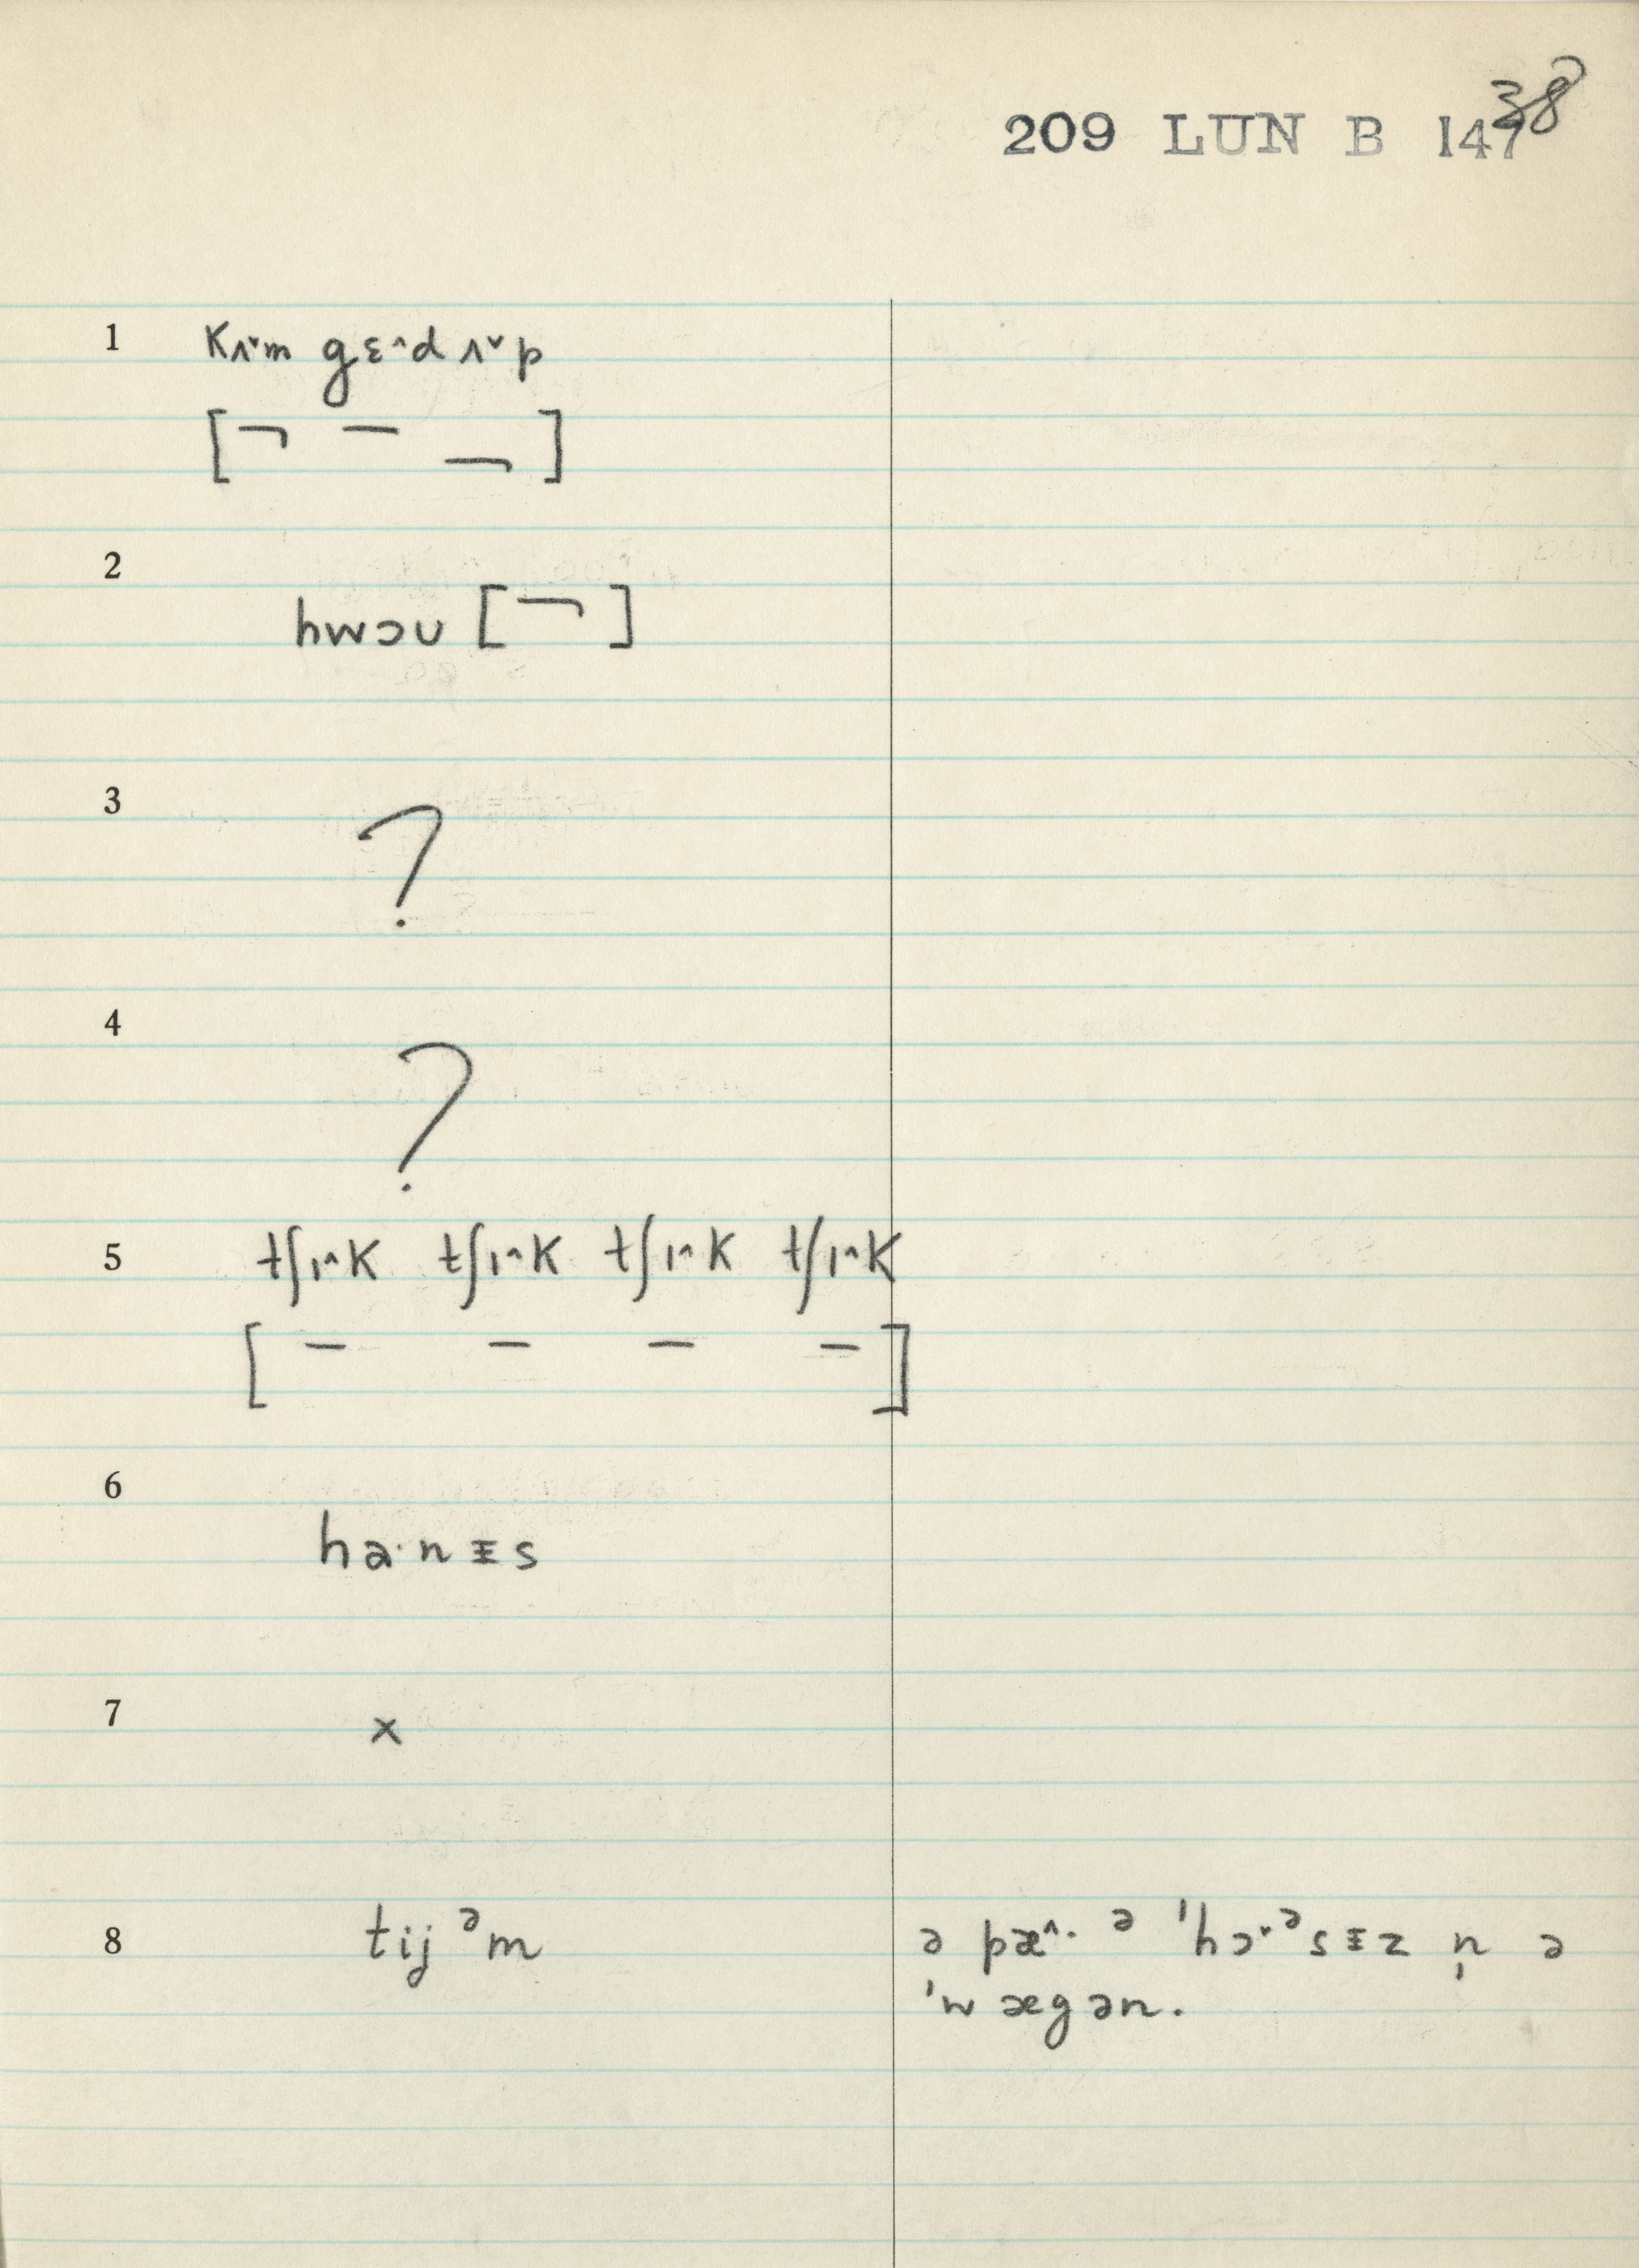 38
209 LUN B 147
1 kʌ˅m gɛ^d ʌ˅p
[ ¬ – – ]
2
hwɔu [ ¬ ]
3 ?
4 ?
5 tʃɪ^k tʃɪ^k tʃɪ^k tʃɪ^k
[ – – – – ]
6
ha·nɪs
7 x
8 tijᵊm ə pæ^· ᵊ 'hɔ˅·ᵊsɪz n̩ ə
'wægən.